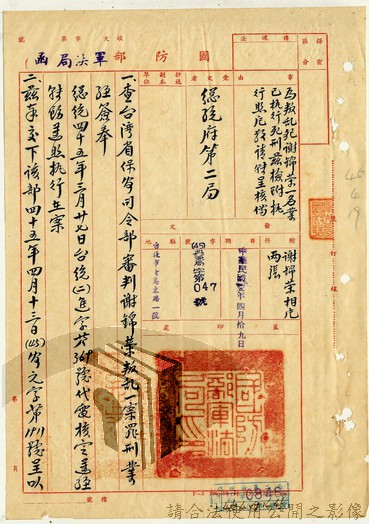 國防部軍法局函
為叛亂犯謝錦榮一名業
已執行死刑茲檢附執
行照片敬請鑒核備
總統府第二局
附件
謝錦榮相片
兩張
中華民國四五年四月拾九日
字第047號
一、查台灣省保安司令部審判謝錦榮叛亂一案罪刑業
經簽奉
總統四十五年三月廿七日台統(二)進字第369號代電核定遵經
轉飭遵照執行在案
二、茲奉交下該部四十五年四月十三日(45)安元字第1911號呈以
0848
請合法使用公開之影像